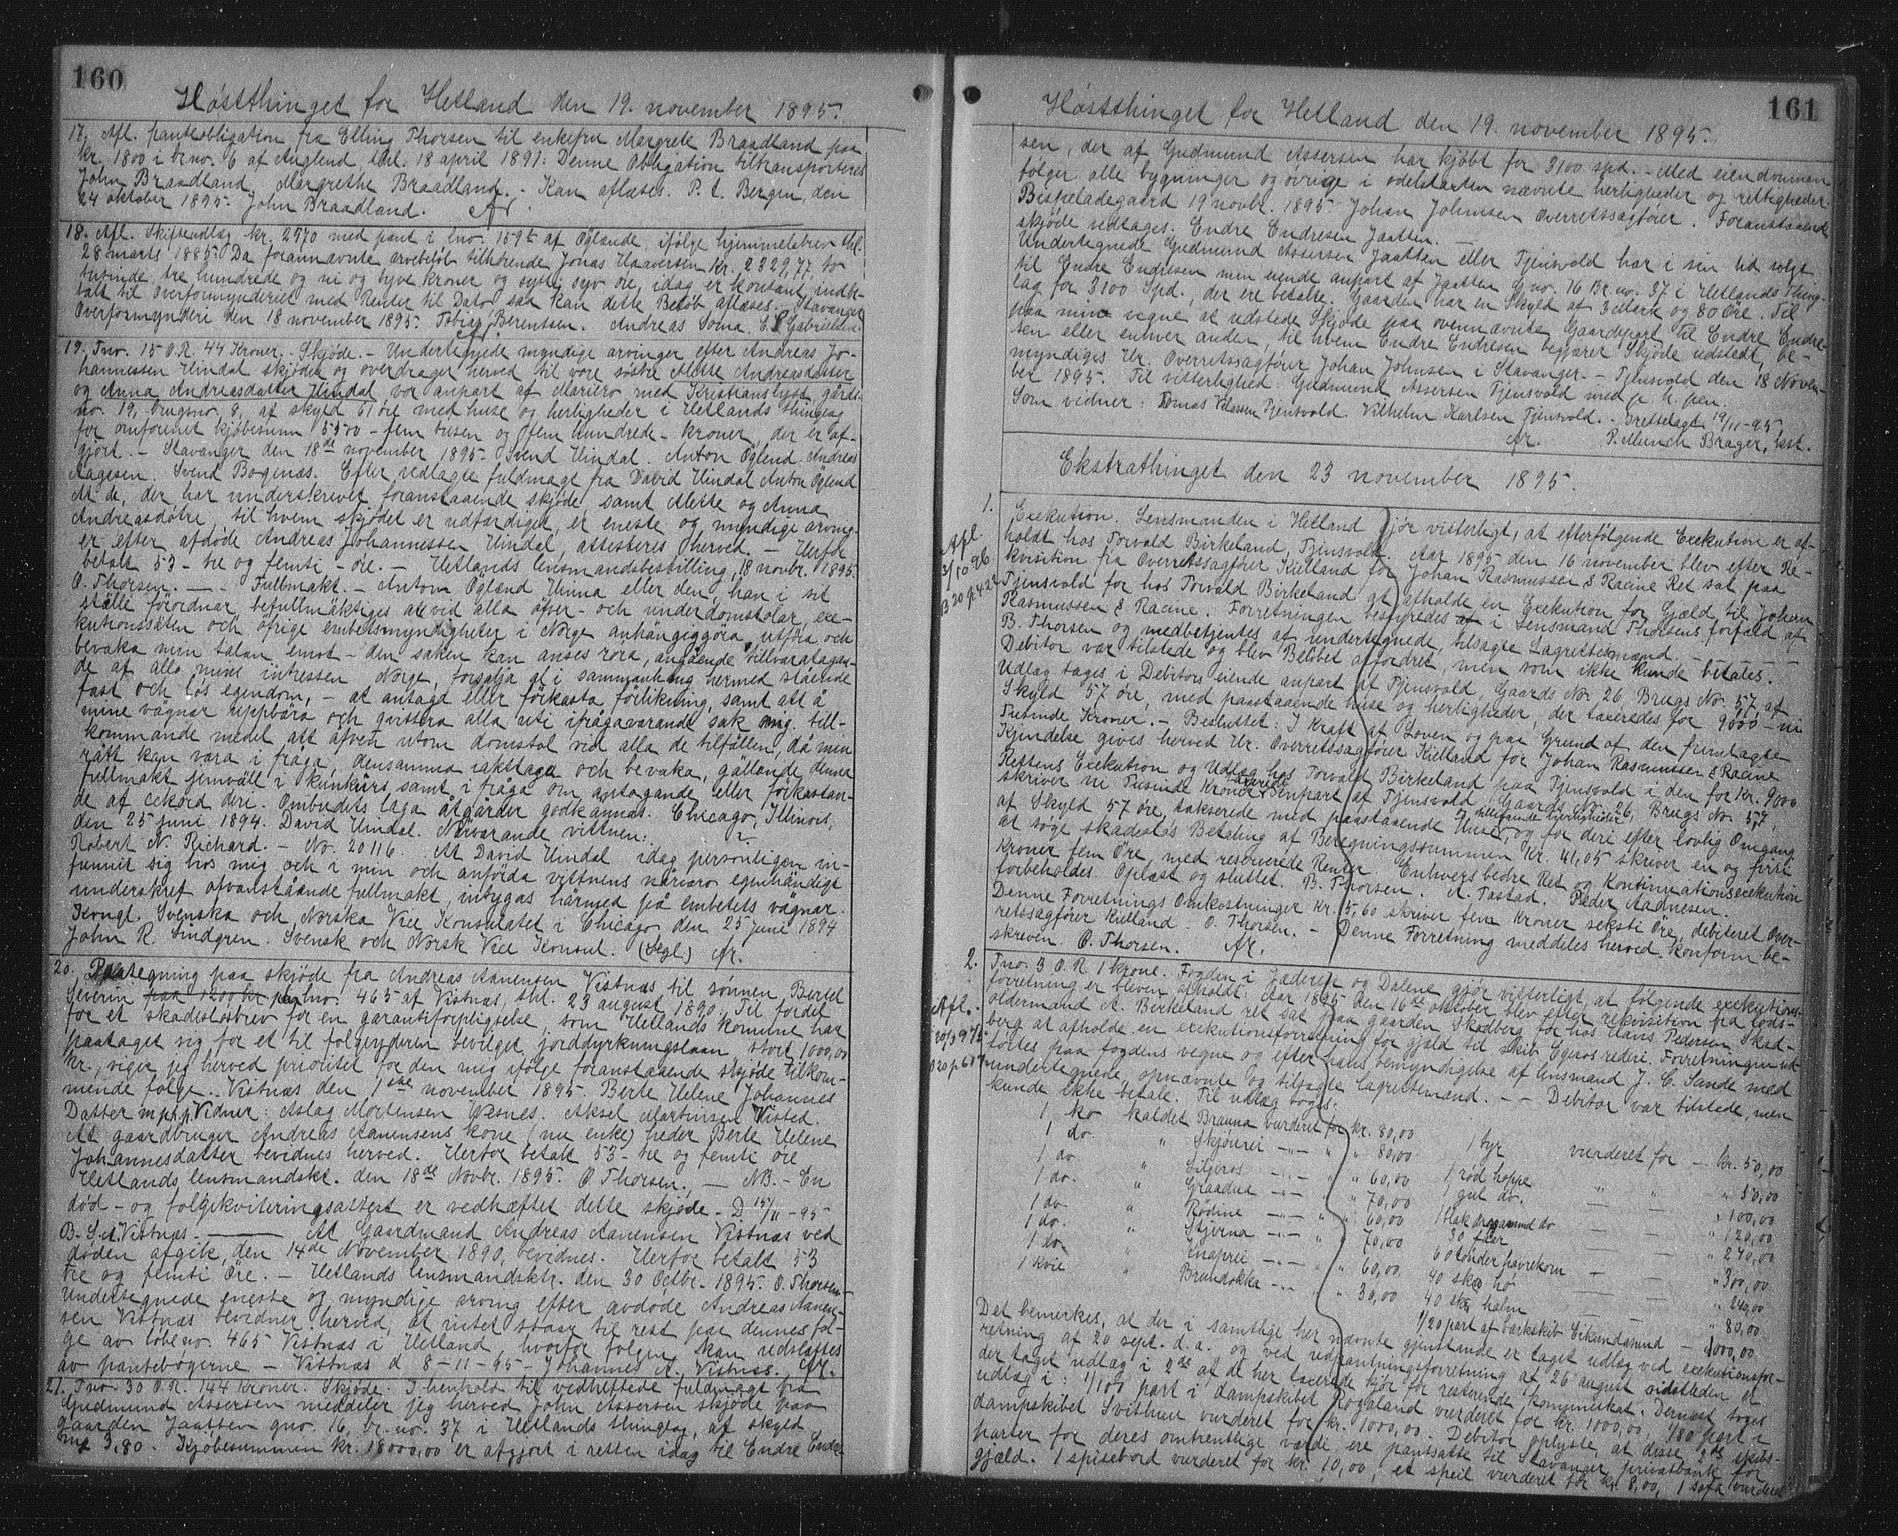 160
Høstthinget for Hetland den 19. november 1895.
17. Afl. panteobligation fra Elling Thorsen til enkefru Margrete Braadland paa
kr. 1800 i brno. 6 af Auglend thl. 18 april 1891: Denne Obligation tiltransporteres
John Braadland. Margrethe Braadland. - Kan aflæses. P. t. Bergen, den
24 oktober 1895. John Braadland. Ar.
18. Afl. Skifteudlæg kr. 2970 med pant i lno. 159b af Øglænde, ifølge hjemmelsbrev thl.
28 marts 1885: Da forannævnte arvebeløb tilhørende Jonas Haaversen Kr. 2329,77 to
tusinde tre hundrede og ni og tyve kroner og sytti syv øre, idag er kontant indbe-
talt til Overformynderiet med Renter til Dato saa kan dette Beløb aflæses. Stavanger
Overformynderi den 18 november 1895. Tobias Berentsen. Andreas Soma. C. Gabrielsen.
19. Tno. 15 O.R. 44 Kroner. - Skjøde. - Undertegnede myndige arvinger efter Andreas Jo-
hannessen Hindal skjøder og overdrager herved til vore søstre Mette Andreasdatter
og Anna Andreasdatter Hindal vor anpart af Mariero med Kristianslyst, gårds-
no. 19, brugsno. 8, af skyld 61 øre med huse og herligheder i Hetlands thinglag
for omforenet kjøbesum 5500 - fem tusen og fem hundrede - kroner, der er af-
gjort. - Stavanger den 18de november 1895. Svend Hindal. Anton Øglend. Andreas
Aagesen. Svend Bogenæs. Efter vedlagte fuldmagt fra David Hindal Anton Øglend
at de, der har underskrevet foranstaaende skjøde, samt Mette og Anna
Andreasdøtre, til hvem skjødet er udfærdiget, er eneste og myndige arving-
er efter afdøde Andreas Johannessen Hindal, attesteres herved. - Herfor
betalt 53 - tre og femti - øre. - Hetlands lensmandsbestilling, 18 novbr. 1895.
O. Thorsen. - - Fullmakt. - Antom Øgland Hinna eller den, han i sit
ställe förordnar befullmäktiges at ved alla öfver- och underdomstolar, exe-
kutionssäten och öfrige embetsmyndigheter i Norge anhängiggöra, utföra och
bevaka min talan emot - den saken kan anses röra, angående tillvaratagan-
de af alla mine intressen i Norge, forsälja al i sammanhang hermed stående
fast och løs egendom, - at antaga eller förkasta förlikning, samt att å
mine vägnar uppbära och qvittera alla uti ifrågavarande sak mig till-
kommande medel att äfven utom domstol vid alla de tilfällen, då min
rätt kan vara i fråga, densamma iakttaga och bevaka, gällande denna
fullmakt jemväll i kunkurs samt i fråga om antagande eller förkastan-
de af ackord deri. Ombudets laga åtgärder godkännas. Chicago, Illinois,
den 25 juni 1894. David Hindal. Närvarande vittnen:
Robert N. Richard. - No. 20116. At David Hindal idag personligen in-
funnit sig hos mig och i min och anförda vittnens närvaro egenhändigt
underskref ofvanstående fullmakt, intygas härmed på embetets vägnar.
Kongl. Svenska och Norska Vice Konsulatet i Chicago, den 25 juni 1894
John R. Lindgren. Svensk och Norsk Vice Konsul. (Segl.) Ar.
20. Paategning paa skjøde fra Andreas Aanensen Vistnæs til sønnen Bertel
Severin paa 1200 kr. paa lno. 465 af Vistnæs, thl. 23 august 1890. Til fordel
for et skadesløsbrev for en garantiforpligtelse, som Hetlands kommune har
paataget sig for et til følgeyderen bevilget jorddyrkningslaan, stort 1000,00
kr., viger jeg herved prioritet for den mig ifølge foranstaaende skjøde tilkom-
mende følge. Vistnæs den 1ste november 1895. Berte Helene Johannes
Datter m.p.h.p. Vidner: Aslag Mortensen Gæsnes. Aksel Martinsen Visted.
At gaardbruger Andreas Aanensens kone (nu enke) heder Berte Helene
Johannesdatter bevidnes herved. Herfor betalt 53 - tre og femti øre
Hetlands lensmandskt. den 18de Novbr. 1895. O. Thorsen. - NB. - En
død- og følgekvitteringsattest er vedhæftet dette skjøde. - D 15/11-95
B. S. A. Vistnæs. - At Gaardmand Andreas Aanensen Vistnæs ved
døden afgik den 14de November 1890, bevidnes. Herfor betalt 53
tre og femti Øre. - Hetlands lensmandsktr. den 30 Octbr. 1895. O. Thorsen. -
Undertegnede eneste og myndige arving efter avdøde Andreas Aanen-
sen Vistnæs bevidner herved, at intet staar til rest paa dennes føl-
ge av løbeno. 465 Vistnæs i Hetland, hvorfor følgen kan udslettes
av pantebøgerne - Vistnæs d 8-11-95 - Johannes A. Vistnæs. Ar.
21. Tno. 30 O.R. 144 Kroner. Skjøde. I henhold til vedheftede fuldmagt fra
Gudmund Assersen meddeler jeg herved John Assersen skjøde paa
gaarden Jaatten gno. 16, br. no. 37 i Hetlands thinglag, af skyld
mk 3,80. Kjøbesummen kr. 18000,00 er afgjort i retten idag til Endre Endre
161
Høstthinget for Hetland den 19. november 1895.
sen, der af Gudmund Assersen har kjøbt for 3100 spd. - Med eiendommen
følger alle bygninger og øvrige i odelstavten nævnte herligheder og rettigheder
Bispeladegaard 19 novbr. 1895. Johan Johnsen Overretssagfører. Foranstaaende
skjøde vedtages. Endre Endresen Jaatten. -
Undertegnede Gudmund Assersen Jaatten eller Tjensvold har i sin tid solgt
til Endre Endresen min eiende anpart af Jaatten G. no. 16 Br. no. 37 i Hetlands Thing-
lag for 3100 Spd., der ere betalte. Gaarden har en Skyld af 3 Mark og 80 Øre. Til
paa mine vegne at udstede Skjøde paa ovennævnte Gaardepart til Endre Endre-
sen eller enhver anden, til hvem Endre Endresen begjærer Skjøde udstedt, be-
myndiges Hr. Overretssagfører Johan Johnsen i Stavanger. - Tjensvold den 18 Novem-
ber 1895. Til vitterlighed: Gudmund Assersen Tjensvold med p. h. pen.
Som vidner: Tomas Klassen Tjensvold. Vilhelm Karlsen Tjensvold. - Grettelagt 19/11-95.
Ar. P. Munch Brager, kst.
Ekstrathinget den 23 november 1895.
1.
Afl.
3/10 96
B 20 p. 422
Exekution. Lensmanden i Hetland gjør vitterligt, at efterfølgende Exekution er af-
holdt hos Torvald Birkeland, Tjensvold. Aar 1895 den 16 november blev efter Re-
kvisition fra Overretssagfører Kielland for Johan Rasmussen & Racine Ret sat paa
Tjensvold for hos Torvald Birkeland at afholde en Exekution for Gjæld til Johan
Rasmussen & Racine. Forretningen bestyredes af i Lensmand Thorsens forfald af
B. Thorsen og medbetjentes af undertegnede, tilsagte Lagrettesmænd. - -
Debitor var tilstede og blev Beløbet affordret, men som ikke kunde betales. -
Udlæg toges i Debitors eiende anpart af Tjensvold, Gaards No. 26 Brugs No. 57 af
Skyld 57 øre, med paastaaende huse og herligheder, der taxeredes for 9000 - ni
Tusinde Kroner. - Besluttet: I Kraft af Loven og paa Grund af den fremlagte
Kjendelse gives herved Hr. Overretssagfører Kielland for Johan Rasmussen & Racine
Rettens Exekution og Udlæg hos Torvald Birkeland paa Tjensvold i den for Kr. 9000
skriver ni Tusinde Kroner taxerede Anpart af Tjensvold, Gaards No. 26, Brugs No. 57,
af Skyld 57 øre, takserede med paastaaende Huse, tillegende herligheder og for deri efter lovlig Omgang
at søge skadesløs Betaling af Beregningssummen Kr. 41,05 skriver en og firti
Kroner fem Øre, med reserverede Renter. Enhvers bedre Ret og Kontinuationsexekution
forbeholdes. Oplæst og sluttet. B. Thorsen. A. Tastad. Peder Aadnesen.
Denne Forretnings Omkostninger Kr. 5,60 skriver fem Kroner seksti Øre, debiteret Over-
retssagfører Kielland. O. Thorsen. - Denne Forretning meddeles herved. Konform be-
skreven. O. Thorsen. Ar.
2.
Afl.
20/9 97
B 20 p. 617
Tno. 3 O.R. 1 krone. Fogden i Jæderen og Dalene gjør vitterligt, at følgende exekutions-
forretning er bleven afholdt: Aar 1895 den 16de oktober blev efter rekvisition fra lods-
oldermand A. Birkeland ret sat paa gaarden Skadberg for hos Hans Pedersen Skad-
berg at afholde en exekutionsforretning for gjæld til skib Egeros rederi. Forretningen ud-
førtes paa fogdens vegne og efter hans bemyndigelse af lensmand J. C. Sande med
undertegnede, opnævnte og tilsagte lagrettemænd. - - Debitor var tilstede, men
kunde ikke betale. Til udlæg toges:
1 ko kaldet Brauna vurderet for kr. 80,00
1 do. " Skjourei -"- " " 80,00 1 tyr vurderet for - kr. 50,00
1 do. " Litjeros -"- " " 60,00 1 rød hoppe " " " 50,00
1 do. " Graadua -"- " " 70,00 1 gul do. " " " 100,00
1 do. " Rødine -"- " " 60,00 1 blak dragsmund do - - " 120,00
1 do. " Stjerna -"- " " 70,00 30 fær - - " 240,00
1 do. " Knaprei -"- " " 60,00 60 tønder havrekorn - - " 300,00
1 kvie " Brundokka -"- " " 30,00 40 skp hø - - " 240,00
40 skp halm - - " 80,00
1/20 part af barkskib Sikundasund - 1000,00
Det bemerkes, at der i samtlige her nævnte gjenstande er taget udlæg ved exekutionsfor-
retning af 20 sept. d. a. og ved udpantningsforretning af 26 august sidstleden er
der taget udlæg i 2de af de her taxerede kjør for resterende kommuneskat. Dernæst toges
udlæg i: 1/100 part i dampskibet Rogaland vurderet for kr. 1000,00, 1/80 part i
dampskibet Svithun vurderet for kr. 1000,00. Debitor oplyste, at disse 2de skibs-
parter for deres omtrentlige værdi ere pantsatte til Stavanger privatbank for
gjæld. 1 spisebord vurderet for kr. 10,00, et speil vurderet for kr. 8,00, 1 sofa vurderet